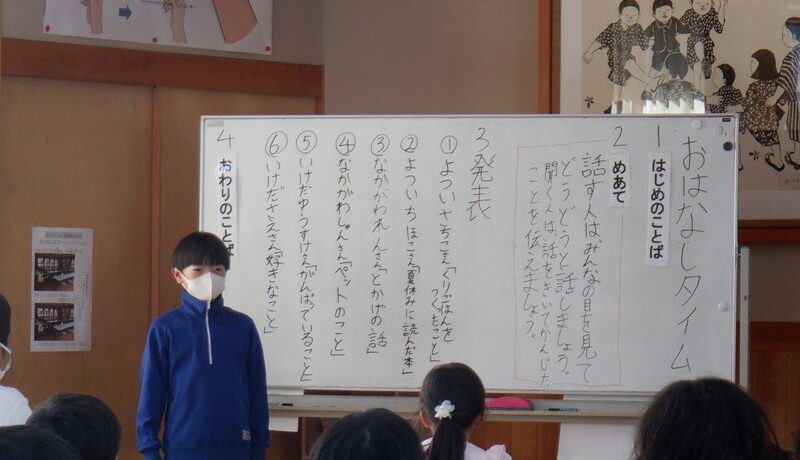 おはなしタイム
1 はじめのことば
2 めあて
話す人はみんなの目を見て
どうどうと話しましょう。
聞く人は、話をきいてかんじた
ことを伝えましょう。
3 発表
①よつい さちこさん「くりごはんを
つくったこと」
②よついち ほこさん「夏休みに読んだ本」
③なかがわれんさん「とかげの話」
④なかがわしゅんさん「ペットのこと」
⑤いけだゆうすけさん「がんばっていること」
⑥いけださえさん「好きなこと」
4 おわりのことば